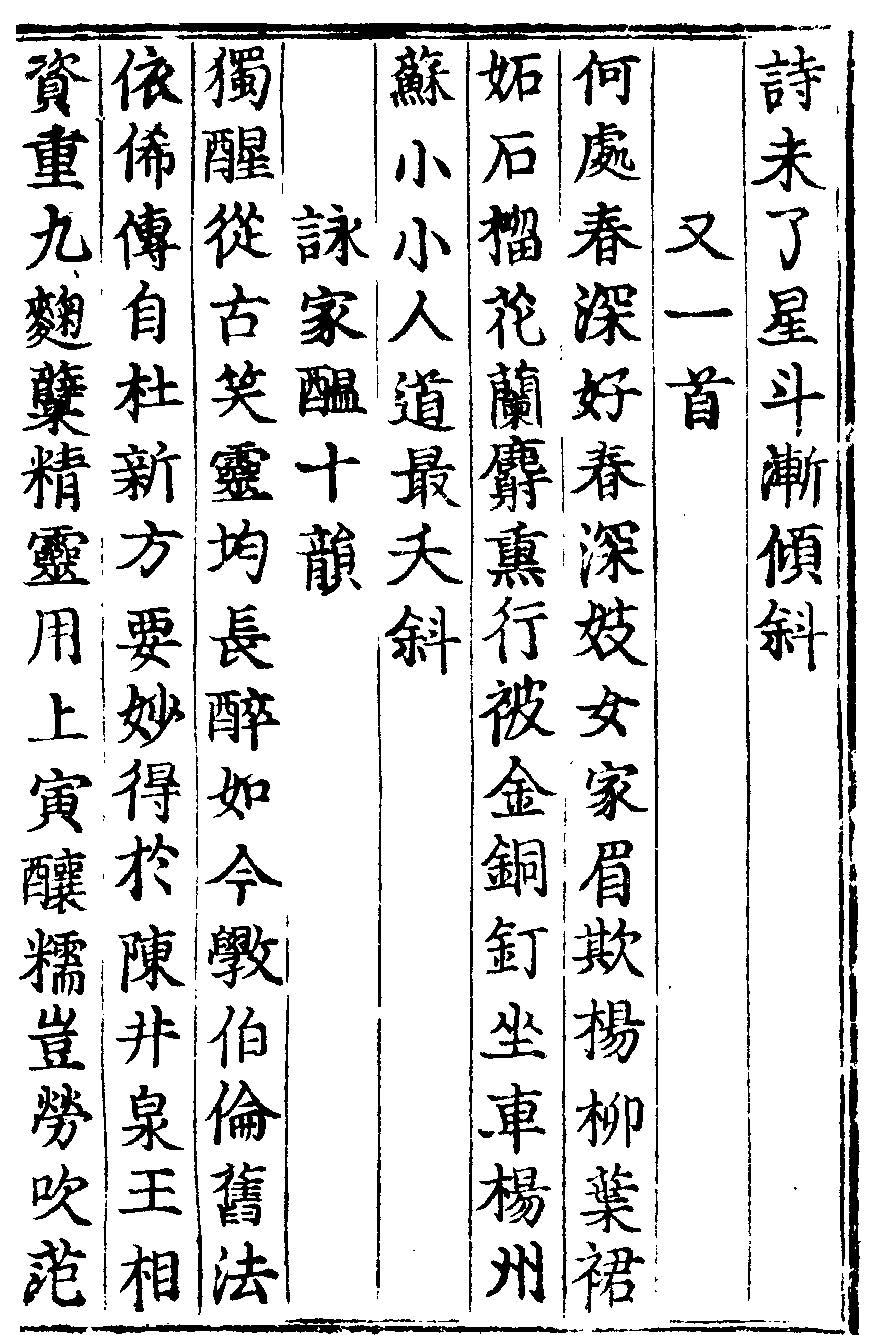 詩未了星斗漸傾斜
又一首
何處春深好春深妓女家眉欺楊柳葉裙
妬石榴花蘭麝熏行被金銅釘坐車楊州
蘇小小人道最夭斜
詠家醖十韻
獨醒從古笑靈均長醉如今斆伯倫舊法
依俙傳自杜新方要妙得於陳井泉王相
資重九麴糵精靈用上寅釀糯豈勞吹范